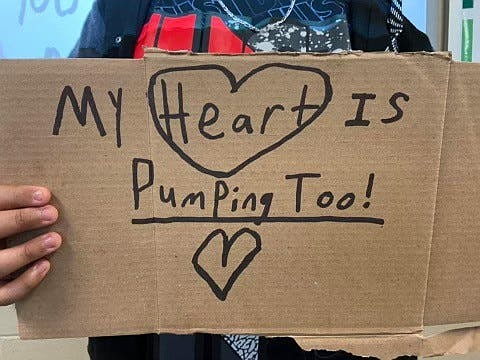 My Heart Is
Pumping Too!